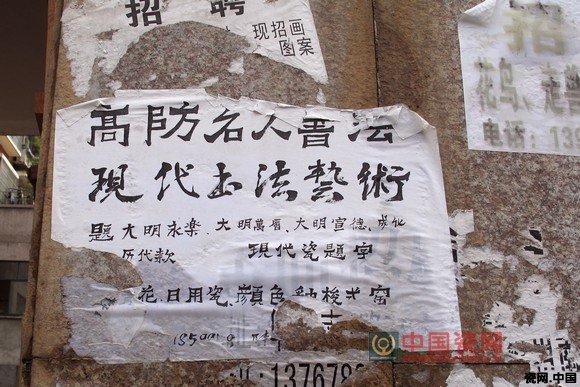 招聘
现招画
图案
高防名人書法
現代书法藝術
題大明永樂、大明萬曆、大明宣德、成化
历代款
現代瓷題字
花、日用瓷、顏色釉梭式窑
招
花鸟、走兽
电话:13
中国瓷网
瓷网.中国